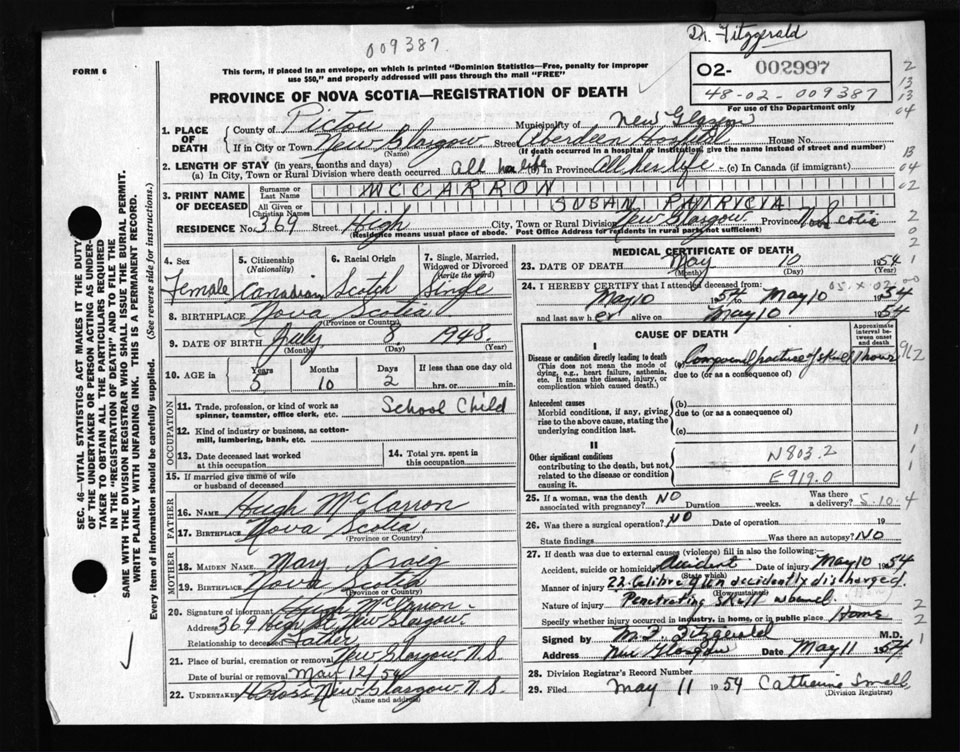 009387
Dr. Fitzgerald
FORM 6
This form, if placed in an envelope, on which is printed "Dominion Statistics—Free, penalty for improper
use $50," and properly addressed will pass through the mail "FREE"
PROVINCE OF NOVA SCOTIA—REGISTRATION OF DEATH
02- 002997
48-02-009387
For use of the Department only
1. PLACE OF DEATH
County of Pictou Municipality of New Glasgow
If in City or Town New Glasgow Street Aberdeen Hospital House No.
(Name) (If death occurred in a hospital or institution, give the name instead of street and number)
2. LENGTH OF STAY (in years, months and days)
(a) In City, Town or Rural Division where death occurred All her life (b) In Province All her life (c) In Canada (if immigrant)
3. PRINT NAME OF DECEASED
Surname or Last Name MCCARRON
All Given or Christian Names SUSAN PATRYCIA
RESIDENCE No. 369 Street High City, Town or Rural Division New Glasgow Province Nova Scotia
(Residence means usual place of abode. Post Office Address for residents in rural parts not sufficient)
4. Sex Female
5. Citizenship (Nationality) Canadian
6. Racial Origin Scotch
7. Single, Married, Widowed or Divorced (write the word) Single
8. BIRTHPLACE Nova Scotia
(Province or Country)
9. DATE OF BIRTH July 8 1948
(Month) (Day) (Year)
10. AGE in Years 5 Months 10 Days 2 If less than one day old hrs. or min.
OCCUPATION
11. Trade, profession, or kind of work as spinner, teamster, office clerk, etc. School Child
12. Kind of industry or business, as cotton-mill, lumbering, bank, etc.
13. Date deceased last worked at this occupation
14. Total yrs. spent in this occupation
15. If married give name of wife or husband of deceased
FATHER
16. NAME Hugh McCarron
17. BIRTHPLACE Nova Scotia
(Province or Country)
MOTHER
18. MAIDEN NAME Mary Craig
19. BIRTHPLACE Nova Scotia
(Province or Country)
20. Signature of informant Hugh McCarron
Address 369 High St, New Glasgow
Relationship to deceased Father
21. Place of burial, cremation or removal New Glasgow N.S.
Date of burial or removal May 12/54
22. UNDERTAKER New Glasgow N.S.
(Name and address)
MEDICAL CERTIFICATE OF DEATH
23. DATE OF DEATH May 10 1954
(Month) (Day) (Year)
24. I HEREBY CERTIFY that I attended deceased from:
May 10 1954 to May 10 1954
and last saw her alive on May 10 1954
CAUSE OF DEATH
Approximate interval between onset and death
I
Disease or condition directly leading to death
(This does not mean the mode of dying, e.g., heart failure, asthenia, etc. It means the disease, injury, or complication which caused death.)
(a) Compound fracture of skull 1 hour
due to (or as a consequence of)
Antecedent causes
Morbid conditions, if any, giving rise to the above cause, stating the underlying condition last.
(b)
due to (or as a consequence of)
(c)
II
Other significant conditions
contributing to the death, but not related to the disease or condition causing it.
N803.2
E919.0
25. If a woman, was the death associated with pregnancy? NO Duration weeks. Was there a delivery?
26. Was there a surgical operation? NO Date of operation 19
State findings Was there an autopsy? NO
27. If death was due to external causes (violence) fill in also the following:—
Accident, suicide or homicide? Accident Date of injury May 10 1954
(State which)
Manner of injury 22 Calibre gun accidently discharged.
(How sustained)
Nature of injury Penetrating skull wound.
Specify whether injury occurred in industry, in home, or in public place Home
Signed by M. F. Fitzgerald M.D.
Address New Glasgow Date May 11 1954
28. Division Registrar's Record Number
29. Filed May 11 1954 Catherine Small
(Division Registrar)
SEC. 46—VITAL STATISTICS ACT MAKES IT THE DUTY
OF THE UNDERTAKER OR PERSON ACTING AS UNDER-
TAKER TO OBTAIN ALL THE PARTICULARS REQUIRED
IN THE "REGISTRATION OF DEATH" AND TO FILE THE
SAME WITH THE DIVISION REGISTRAR WHO SHALL ISSUE THE BURIAL PERMIT.
WRITE PLAINLY WITH UNFADING INK. THIS IS A PERMANENT RECORD.
Every item of information should be carefully supplied. (See reverse side for instructions.)